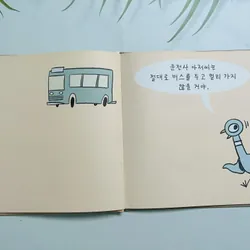 운전사 아저씨는
절대로 버스를 두고 멀리 가지
않을 거야.